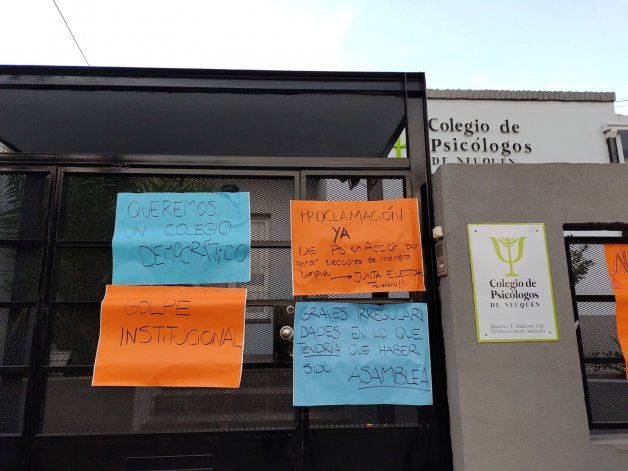 Colegio de
Psicólogos
DE NEUQUÉN
QUEREMOS
UN COLEGIO
DEMOCRÁTICO
PROCLAMACIÓN
YA
DE Psi en Acción por
ganar elecciones de manera
limpia → JUNTA ELECTORAL
Teléfono!!!
GOLPE
INSTITUCIONAL
GRAVES IRREGULARI
DADES EN LO QUE
TENDRIA QUE HABER
SIDO ASAMBLEA
Colegio de
Psicólogos
DE NEUQUÉN